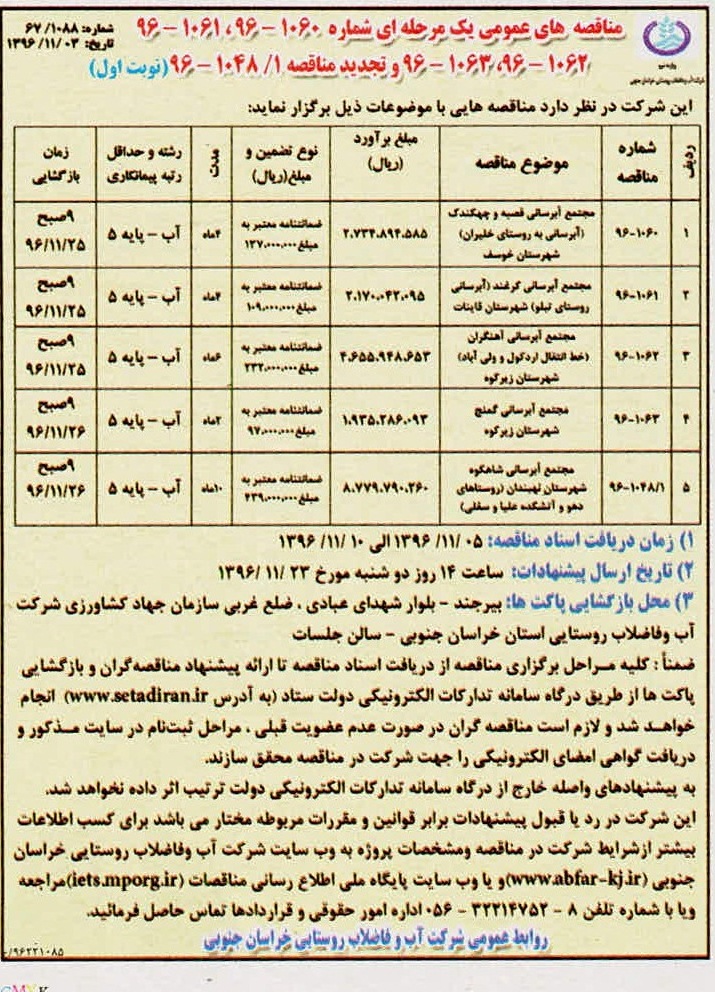 شماره: ۶۷/۱۰۸۸
تاریخ: ۱۳۹۶/۱۱/۰۳
مناقصه های عمومی یک مرحله ای شماره ۱۰۶۰ - ۹۶، ۱۰۶۱ - ۹۶
۱۰۶۲ - ۹۶، ۱۰۶۳ - ۹۶ و تجدید مناقصه ۱/ ۱۰۴۸ - ۹۶ (نوبت اول)
این شرکت در نظر دارد مناقصه هایی با موضوعات ذیل برگزار نماید:
ردیف | شماره مناقصه | موضوع مناقصه | مبلغ برآورد (ریال) | نوع تضمین و مبلغ(ریال) | مدت | رشته و حداقل رتبه پیمانکاری | زمان بازگشایی
۱ | ۹۶-۱۰۶۰ | مجتمع آبرسانی قصبه و چهکندک (آبرسانی به روستای خلیران) شهرستان خوسف | ۲.۷۳۴.۸۹۴.۵۸۵ | ضمانتنامه معتبر به مبلغ ۱۳۷.۰۰۰.۰۰۰ | ۴ماه | آب - پایه ۵ | ۹صبح ۹۶/۱۱/۲۵
۲ | ۹۶-۱۰۶۱ | مجتمع آبرسانی کرغند (آبرسانی روستای تیلو) شهرستان قاینات | ۲.۱۷۰.۰۴۲.۰۹۵ | ضمانتنامه معتبر به مبلغ ۱۰۹.۰۰۰.۰۰۰ | ۴ماه | آب - پایه ۵ | ۹صبح ۹۶/۱۱/۲۵
۳ | ۹۶-۱۰۶۲ | مجتمع آبرسانی آهنگران (خط انتقال اردکول و ولی آباد) شهرستان زیرکوه | ۴.۶۵۵.۹۴۸.۶۵۳ | ضمانتنامه معتبر به مبلغ ۲۳۲.۰۰۰.۰۰۰ | ۶ماه | آب - پایه ۵ | ۹صبح ۹۶/۱۱/۲۵
۴ | ۹۶-۱۰۶۳ | مجتمع آبرسانی گمنج شهرستان زیرکوه | ۱.۹۳۵.۲۸۶.۰۹۳ | ضمانتنامه معتبر به مبلغ ۹۷.۰۰۰.۰۰۰ | ۲ماه | آب - پایه ۵ | ۹صبح ۹۶/۱۱/۲۶
۵ | ۹۶-۱۰۴۸/۱ | مجتمع آبرسانی شاهکوه شهرستان نهبندان (روستاهای دهو و آتشکده علیا و سفلی) | ۸.۷۷۹.۷۹۰.۲۶۰ | ضمانتنامه معتبر به مبلغ ۴۳۹.۰۰۰.۰۰۰ | ۱۰ماه | آب - پایه ۵ | ۹صبح ۹۶/۱۱/۲۶
۱) زمان دریافت اسناد مناقصه: ۰۵ /۱۱/ ۱۳۹۶ الی ۱۰ /۱۱/ ۱۳۹۶
۲) تاریخ ارسال پیشنهادات: ساعت ۱۴ روز دو شنبه مورخ ۲۳ /۱۱ /۱۳۹۶
۳) محل بازگشایی پاکت ها: بیرجند - بلوار شهدای عبادی ، ضلع غربی سازمان جهاد کشاورزی شرکت
آب وفاضلاب روستایی استان خراسان جنوبی - سالن جلسات
ضمناً : کلیه مراحل برگزاری مناقصه از دریافت اسناد مناقصه تا ارائه پیشنهاد مناقصه‌گران و بازگشایی
پاکت ها از طریق درگاه سامانه تدارکات الکترونیکی دولت ستاد (به آدرس www.setadiran.ir) انجام
خواهد شد و لازم است مناقصه گران در صورت عدم عضویت قبلی ، مراحل ثبت‌نام در سایت مذکور و
دریافت گواهی امضای الکترونیکی را جهت شرکت در مناقصه محقق سازند.
به پیشنهادهای واصله خارج از درگاه سامانه تدارکات الکترونیکی دولت ترتیب اثر داده نخواهد شد.
این شرکت در رد یا قبول پیشنهادات برابر قوانین و مقررات مربوطه مختار می باشد برای کسب اطلاعات
بیشتر ازشرایط شرکت در مناقصه ومشخصات پروژه به وب سایت شرکت آب وفاضلاب روستایی خراسان
جنوبی (www.abfar-kj.ir)و یا وب سایت پایگاه ملی اطلاع رسانی مناقصات (iets.mporg.ir)مراجعه
ویا با شماره تلفن ۸ - ۳۲۲۱۴۷۵۲ - ۰۵۶ اداره امور حقوقی و قراردادها تماس حاصل فرمائید.
روابط عمومی شرکت آب و فاضلاب روستایی خراسان جنوبی
/۹۶۲۲۱۰۸۵
CMYK